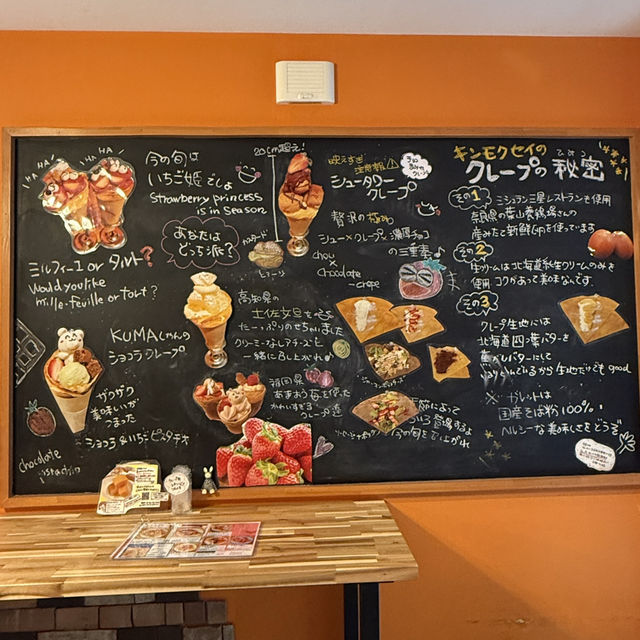 HA HA HA
HA HA
今の旬は
いちご姫でしょ
Strawberry princess
is in season
あなたは
どっち派?
ミルフィーユ or タルト?
Would you like
mille-feuille or tart?
KUMAしゃんの
ショコラクレープ
ザクザク
美味しいが
つまった
ショコラ&いちごピスタチオ
chocolate
20cm超え!
映えすぎ
注意報
シュータワー
クレープ
贅沢の極み
シュー×クレープ×濃厚チョコ
の三重奏♪
chou
×
chocolate
×
crepe
高知県の
土佐文旦を
たーっぷりのせちゃいました
クリーミーなレアチーズと
一緒に召し上がれ♪
福岡県
あまおう苺を使った
かわいすぎる
クレープ達
季節によって
今の旬をめしあがれ
キンモクセイの
クレープの秘密
ひみつ
その1
ミシュラン三星レストランも使用
奈良県の葉山養鶏場さんの
産みたて新鮮卵を使っています
その2
生クリームは北海道乳生クリームのみを
使用 コクがあって美味なんです。
その3
クレープ生地には
北海道四つ葉バターを
焦がしバターにして
ねりこんでいるから生地だけでもgood
※ ガレットは
国産そば粉100%!
ヘルシーな美味しさをどうぞ